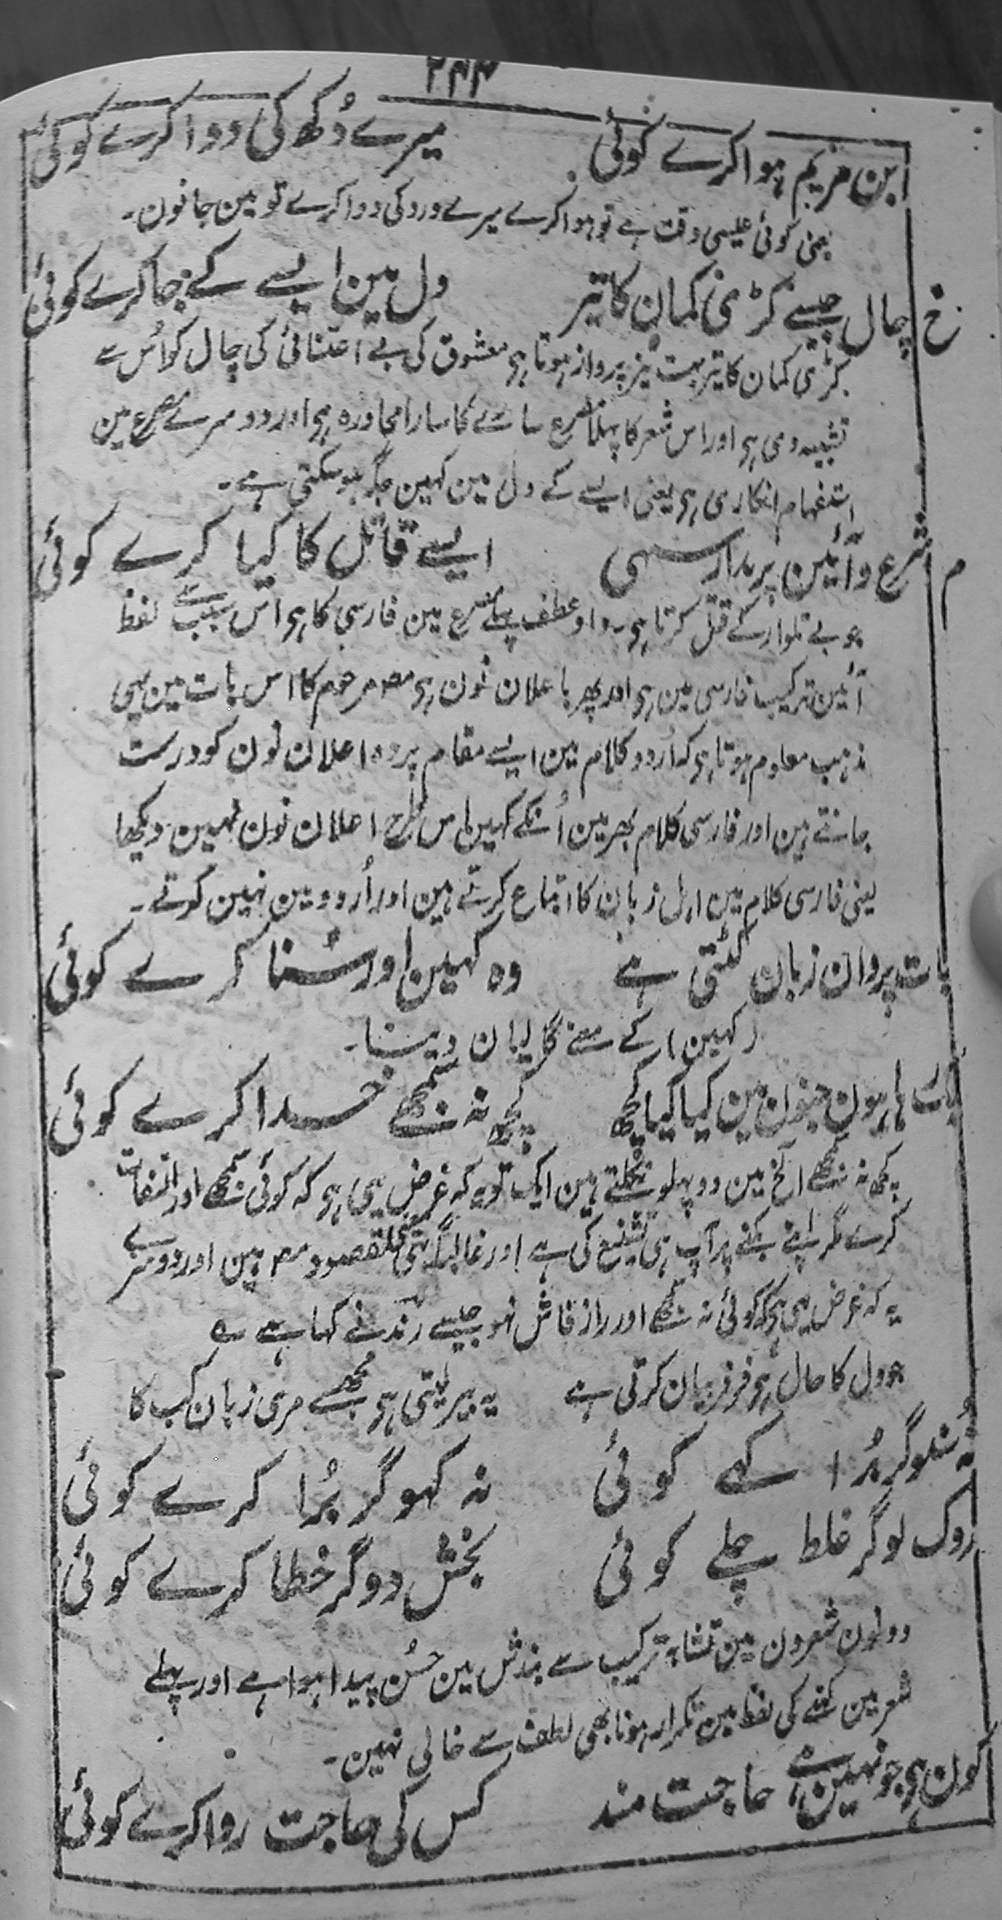 ۲۴۴
ابن مریم ہوا کرے کوئی میرے دُکھ کی دوا کرے کوئی
یعنی کوئی عیسی وقت ہے تو ہوا کرے میرے درد کی دوا کرے تو مین جانون۔
خ چال جیسے کڑی کمان کا تیر دل مین ایسے کے جا کرے کوئی
کڑی کمان کا تیر بہت تیز پرواز ہوتا ہی معشوق کی بے اعتنائی کی چال کو اُس سے
تشبیہ دی ہی اور اس شعر کا پہلا مصرع سارے کا سارا محاورہ ہی اور دوسرے مصرع مین
استفہام انکاری ہی یعنی ایسے کے دل مین کہین جگہ ہو سکتی ہے۔
م شرع و آئین پر مدار سہی ایسے قاتل کا کیا کرے کوئی
جو بے تلوار کے قتل کرتا ہی۔ واو عطف پہلے مصرع مین فارسی کا ہی اس سبب سے لفظ
آئین ترکیب فارسی مین ہی اور پھر باعلان نون ہی مصہ مرحوم کا اس بات مین یہی
مذہب معلوم ہوتا ہی کہ اُردو کلام مین ایسے مقام پر وہ اعلان نون کو درست
جانتے ہین اور فارسی کلام بھر مین اُنکے کہین اس طرح اعلان نون نہین دیکھا
یعنی فارسی کلام مین اہل زبان کا اتباع کرتے ہین اور اُردو مین نہین کرتے۔
بات پر وان زبان کٹتی ہے وہ کہین اور سُنا کرے کوئی
(کہین) کے معنے گالیان دینا۔
بک رہا ہون جنون مین کیا کیا کچھ کچھ نہ سمجھے خدا کرے کوئی
کچھ نہ سمجھے الخ مین دو پہلو نکلتے ہین ایک تو یہ کہ غرض یہی ہو کہ کوئی سمجھے اور التفات
کرے مگر اپنے بکنے پر آپ ہی تشنیع کی ہے اور غالباً یہی مقصود مصہ ہین اور دوسرے
یہ کہ غرض یہی ہی کہ کوئی نہ سمجھے اور راز فاش نہو جیسے رند نے کہا ہے ؎
جو دل کا حال ہی فر فر بیان کرتی ہے یہ بیر لیتی ہو مجھسے مری زبان کب کا
نہ سُنو گر بُرا کہے کوئی نہ کہو گر بُرا کرے کوئی
روک لو گر غلط چلے کوئی بخش دو گر خطا کرے کوئی
دونون شعرون مین تشابہ ترکیب سے بندش مین حسُن پیدا ہوا ہے اور پہلے
شعر مین کہنے کی لفظ مین تکرار ہونا بھی لطف سے خالی نہین۔
کون ہی جو نہین ہے حاجتمند کس کی حاجت روا کرے کوئی